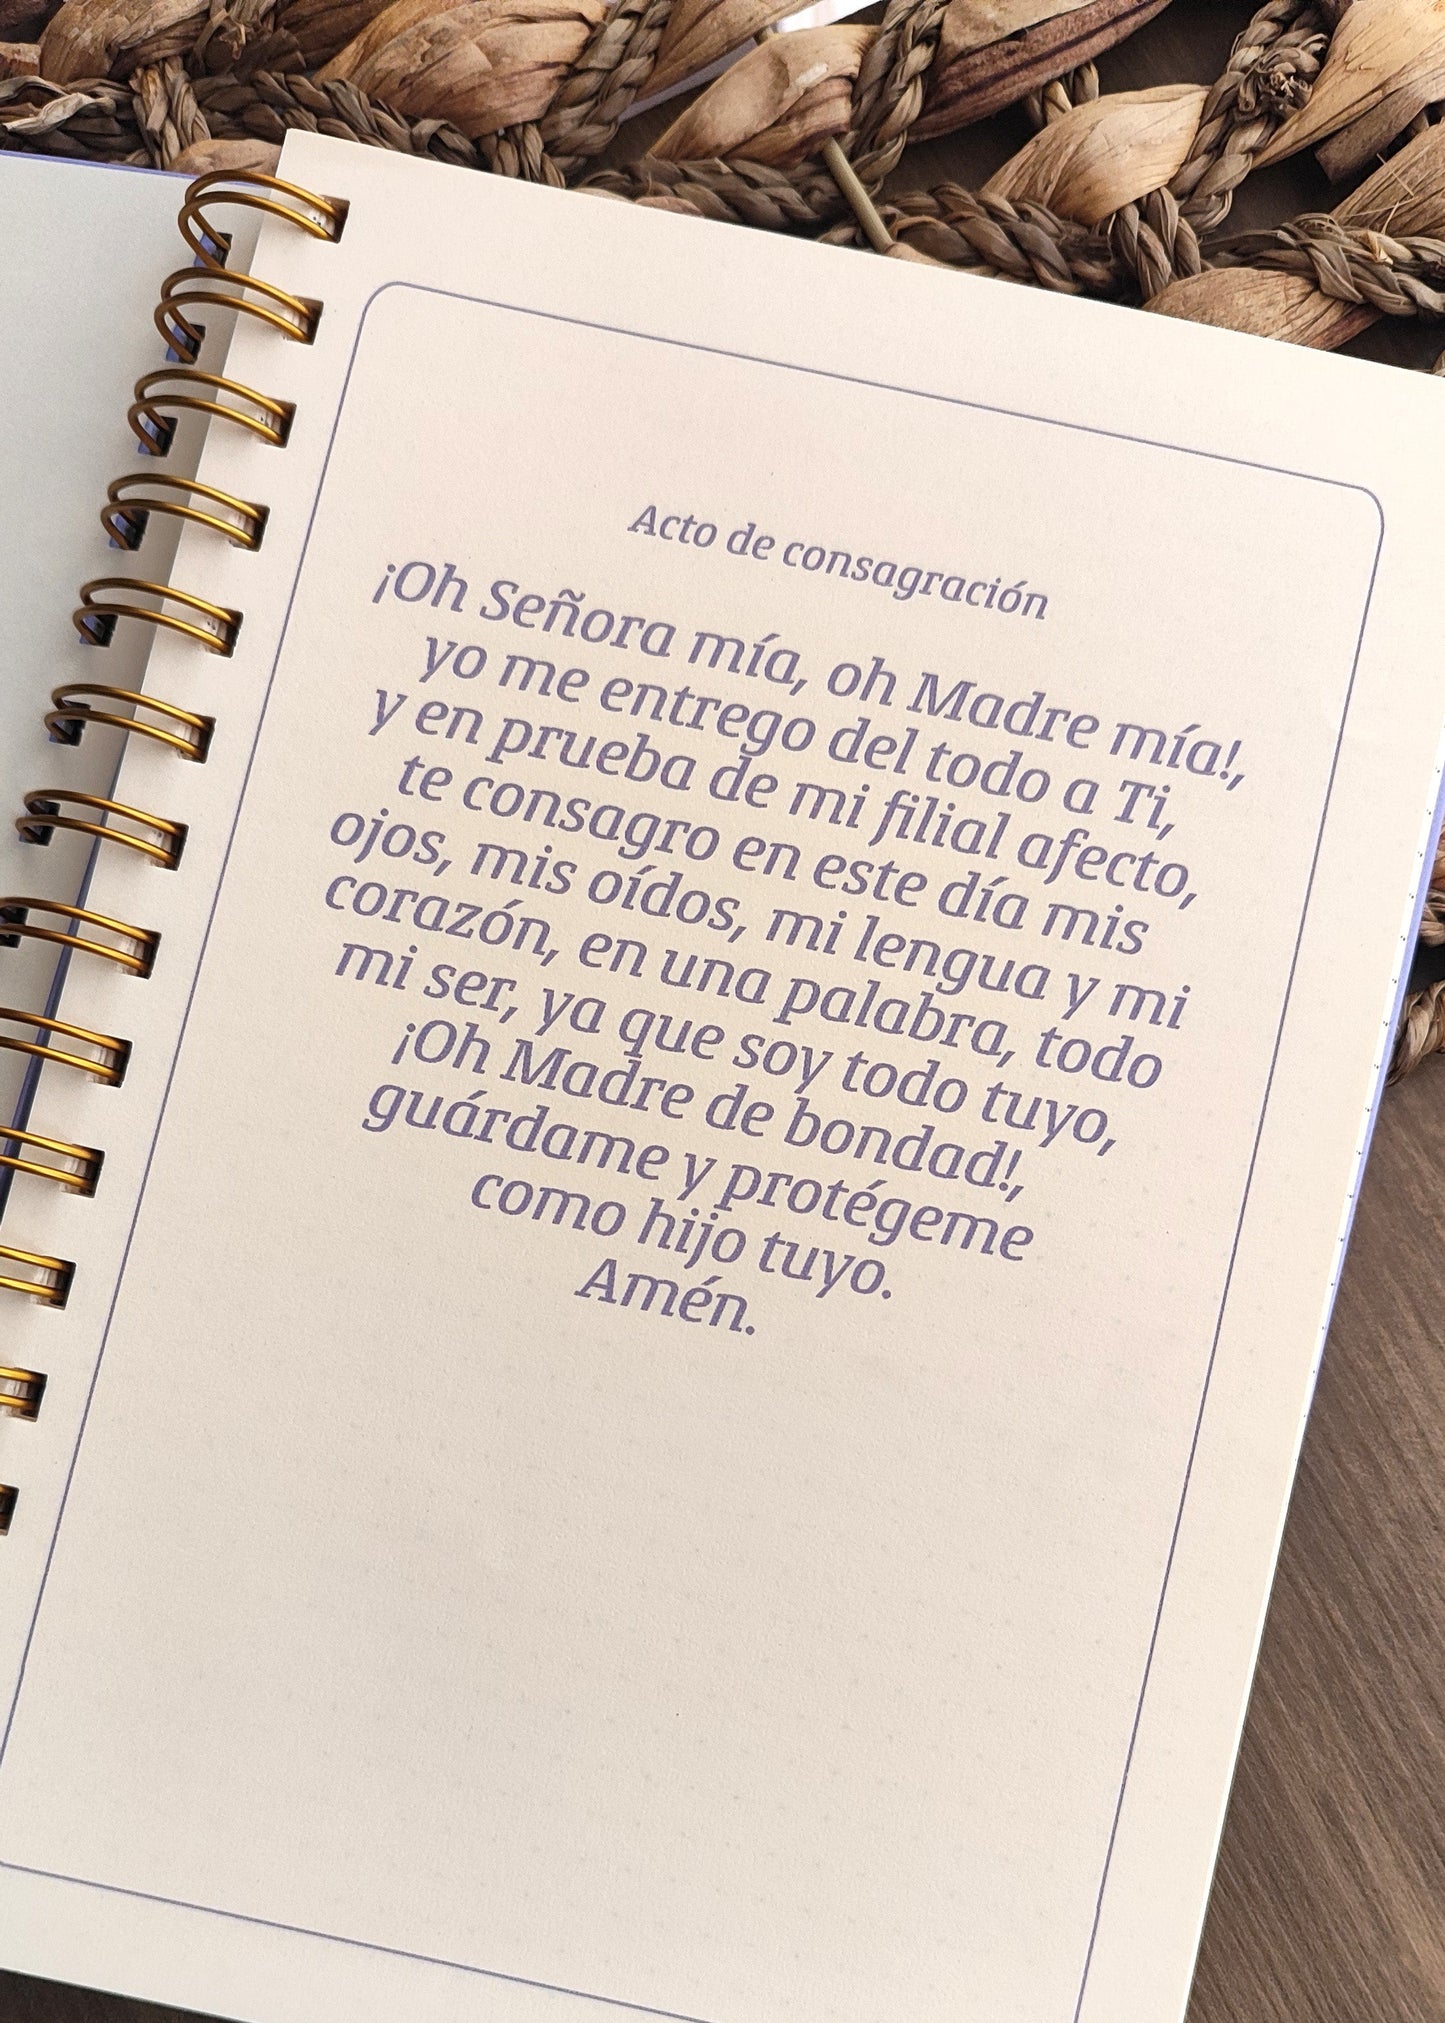 Acto de consagración
¡Oh Señora mía, oh Madre mía!,
yo me entrego del todo a Ti,
y en prueba de mi filial afecto,
te consagro en este día mis
ojos, mis oídos, mi lengua y mi
corazón, en una palabra, todo
mi ser, ya que soy todo tuyo,
¡Oh Madre de bondad!,
guárdame y protégeme
como hijo tuyo.
Amén.